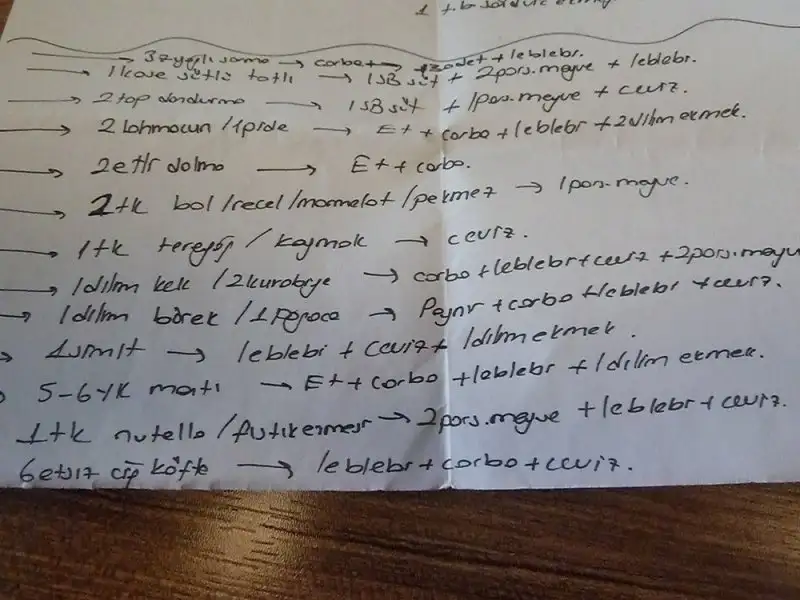 3 zeytinyağlı sarma → çorba + leblebi.
1 kase sütlü tatlı → 1SB süt + 2pors.meyve + leblebi.
2 top dondurma → 1SB süt + 1pors.meyve + ceviz.
2 lahmacun /1pide → Et + çorba + leblebi + 2dilim ekmek.
2 etli dolma → Et + çorba.
2tk bal /reçel /marmelat /pekmez → 1pors.meyve.
1tk tereyağ / kaymak → ceviz.
1dilim kek /2kurabiye → çorba + leblebi + ceviz + 2pors.meyve
1dilim börek /1 poğaca → Peynir + çorba + leblebi + ceviz.
1simit → leblebi + ceviz + 1dilim ekmek.
5-6 YK mantı → Et + çorba + leblebi + 1dilim ekmek.
1tk nutella /fıstıkezmesi → 2pors.meyve + leblebi + ceviz.
6etsiz çiğ köfte → leblebi + çorba + ceviz.